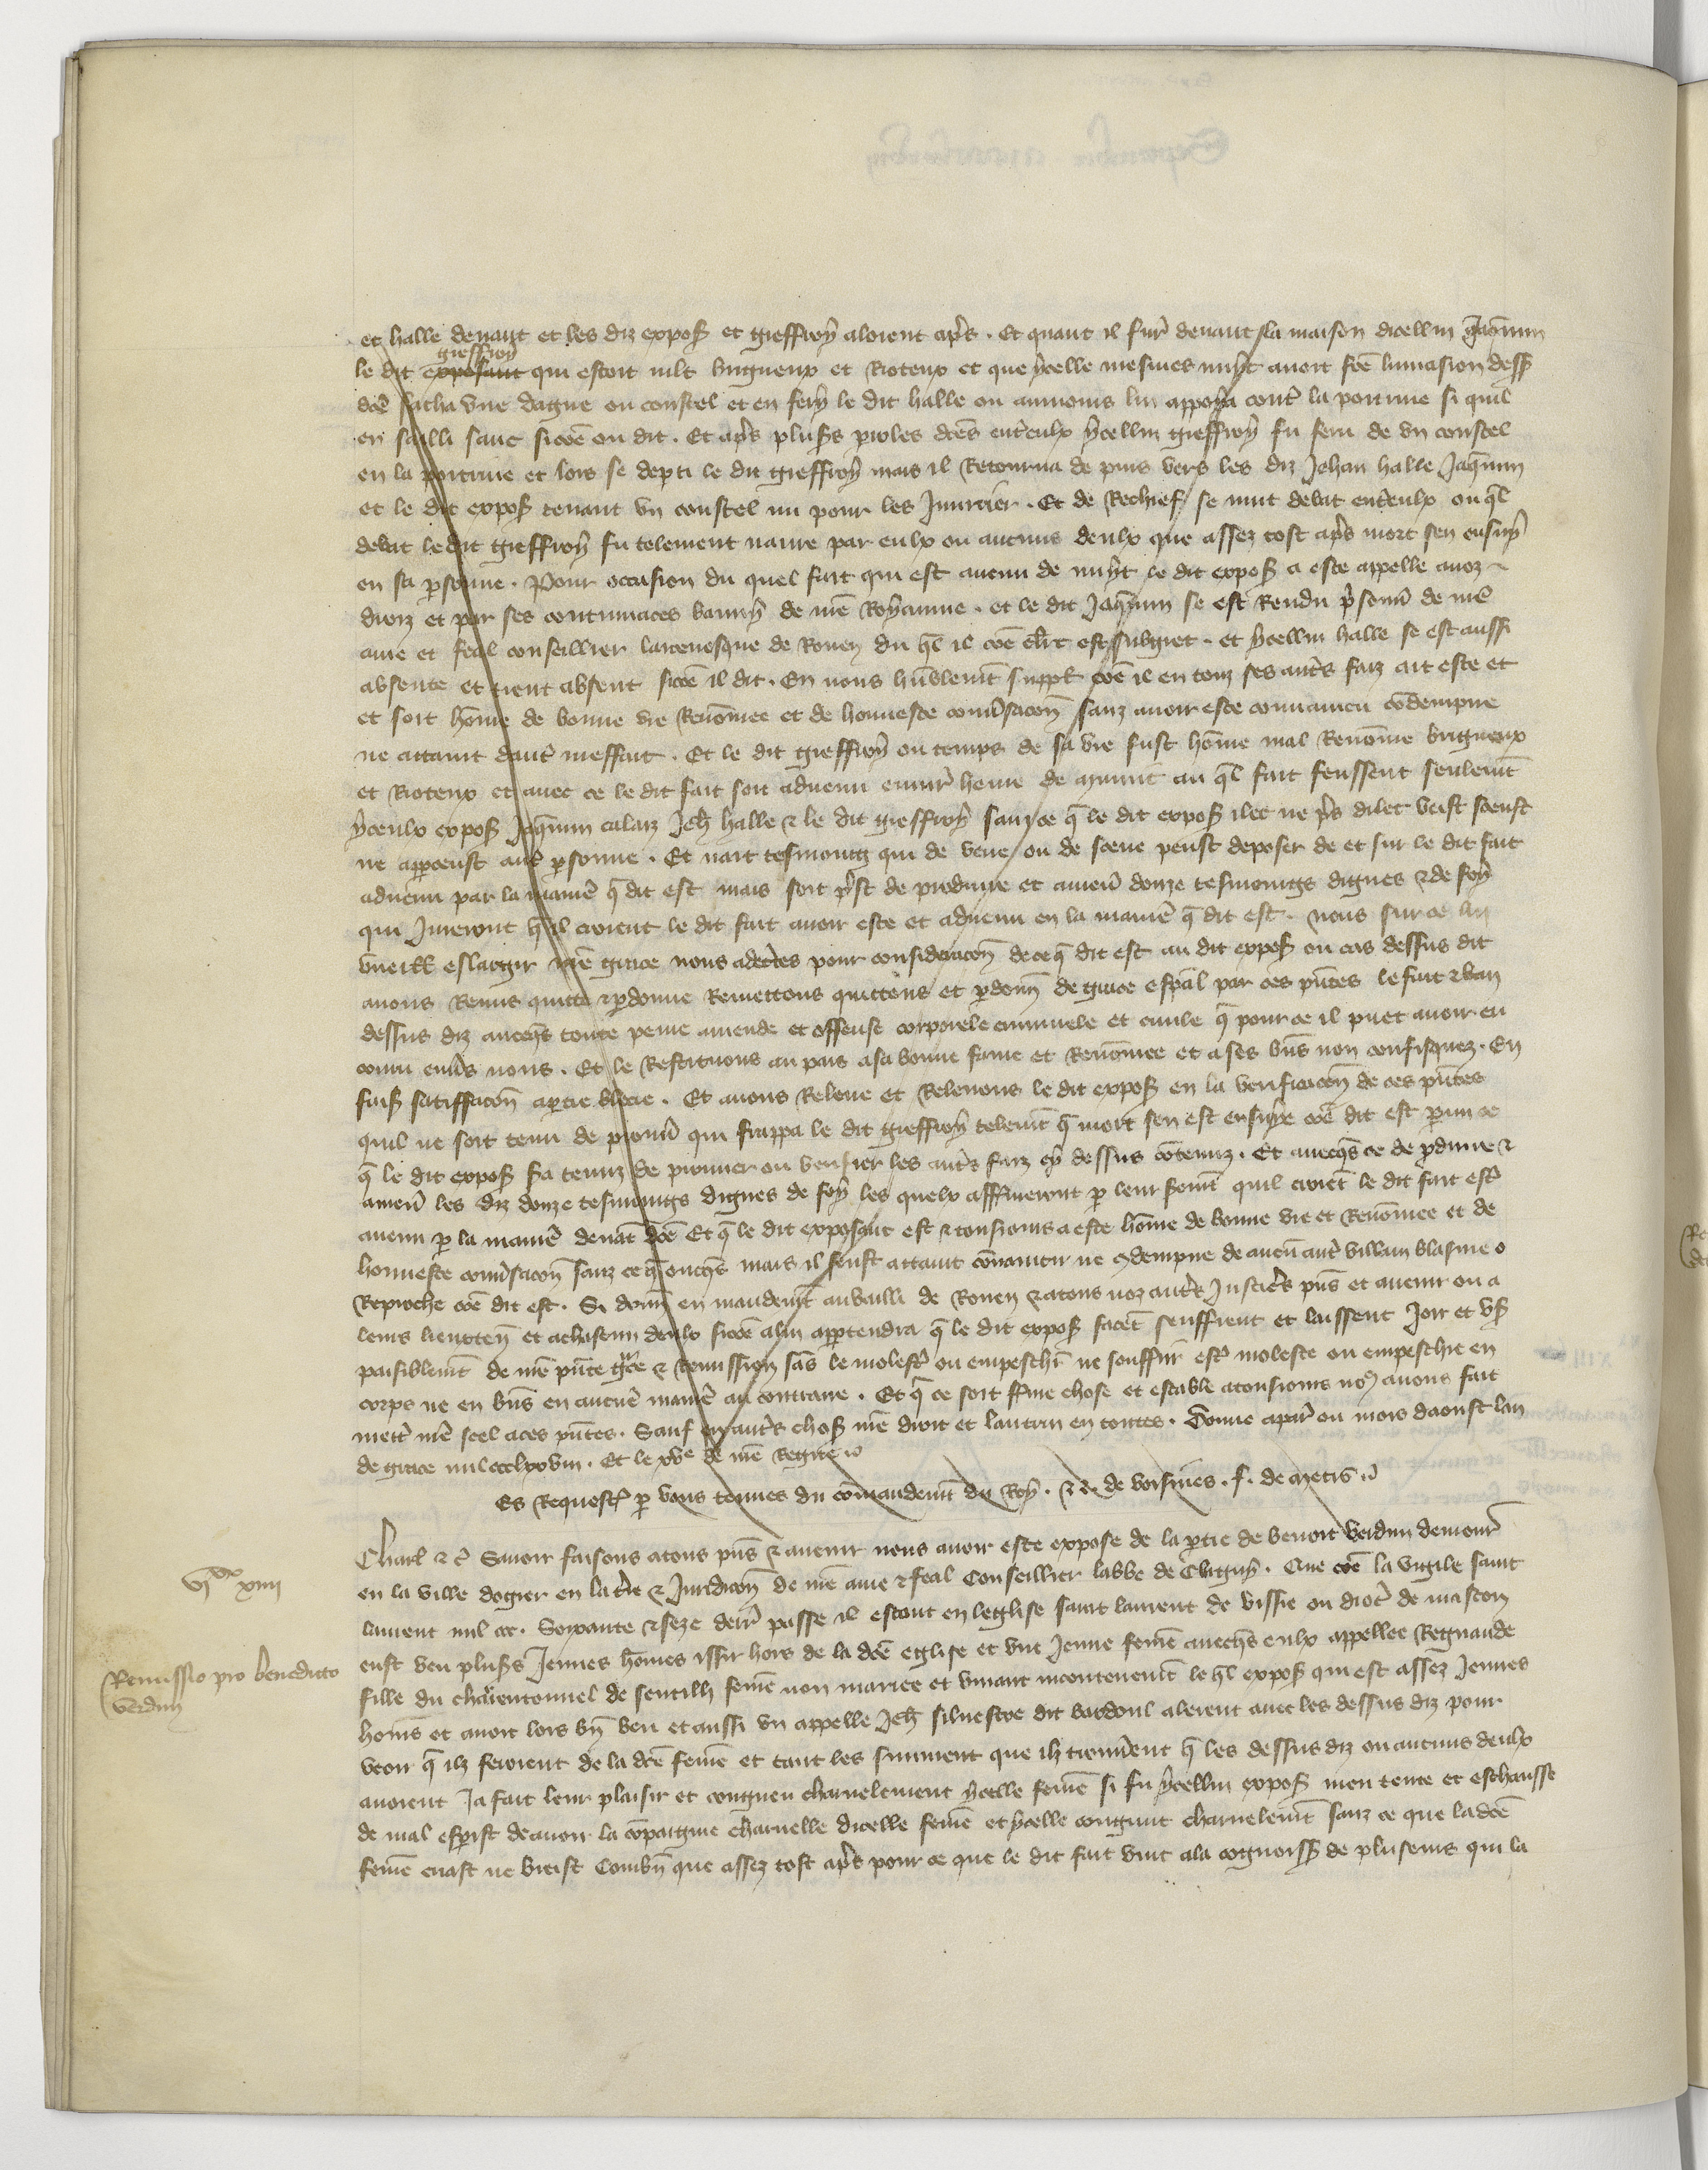 et halle devant et les diz expos et gieffroy aloient apres . Et quant il fur devant la maison dicellui Jaquemin
gieffroy
le dit exposant qui estoit mlt briguenx et Rioteux et que ycelle mesmes nuyt avoit fce linvasion dess
dce sacha une dague ou coustel et en fery le dit halle ou aumoins lui appoya contr la poitrine si quil
en sailli sanc sicoe on dit . Et apres pluss proles dces entreulx ycellui gieffroy fu feru de un coustel
en la poitrine et lors se depti le dit gieffroy mais il Retourna de puis vers les diz Jehan halle Jaquemin
et le dit expos tenant un coustel nu pour les Jniurier . Et de Rechief se mut debat entreulx ou ql
debat le dit gieffroy fu telement navre par eulx ou aucuns deulx que assez tost apres mort sen ensuy
en sa psonne . Pour occasion du quel fait qui est avenu de nuyt le dit expos a este appelle a noz
droiz et par ses contumaces banny de nre Royaume . et le dit Jaquemin se est Rendu prisonn de nre
ame et feal conseillier larcevesque de Rouen du ql il coe clerc est subgiet . et ycellui halle se est aussi
absente et tient absent sicoe il dit . En nous humblemt suppl coe il en touz ses autres faiz ait este et
et soit home de bonne vie Renomee et de honneste conversacon sanz avoir este convaincu condempne
ne attaint dautr meffait . Et le dit gieffroy ou temps de sa vie fust home mal Renome brigueux
et Rioteux et avec ce le dit fait soit advenu environ heure de mynuit au ql fait feussent seulemt
yceulx expos Jaquemin calaiz Jeh halle & le dit gieffroy sanz ce q le dit expos ilec ne pres dilec veist sceust
ne apperceust autr psonne . Et nait tesmoings qui de veue ou de sceue peust deposer de et sur le dit fait
advenu par la maniere q dit est mais soit prest de produire et amener douze tesmoings dignes & de foy
qui Jureront quil croient le dit fait avoir este et advenu en la maniere q dit est . nous sur ce lui
vueill eslargir nre grace nous adecertes pour consideracon de ce q dit est au dit expos ou cas dessus dit
avons Remis quitte & pdonne Remettons quittons et pdonn de grace espal par ces pntes le fait & ban
dessus diz avecqs toute peine amende et offense corporele criminele et civile q pour ce il puet avoir en
couru envers nous . Et le Restituons au pais a sa bonne fame et Renomee et a ses bns non confisquez . En
fais satiffacon a ptie blecie . Et avons Releve et Relevons le dit expos en la verificacon de ces pntes
quil ne soit tenu de prouver qui frappa le dit gieffroy telemt q mort sen est ensuye coe dit est pmi ce
q le dit expos sa tenuz de prouver ou verifier les autres faiz cy dessus contenuz . Et avecqs ce de pduire &
amener les diz douze tesmoings dignes de foy les quelx affirmeront p leur sermt quil croiet le dit fait estre
avenu p la maniere devat dce Et q le dit exposant est & tousiours a este home de bonne vie et Renomee et de
honneste conversacon sanz ce q oncqs mais il feust attaint convaincu ne condempne de aucun autre villain blasme o
Reproche coe dit est . Si donn en mandemt au bailli de Rouen & a tous noz autres Justiciers pns et avenir ou a
leurs lieuxten et a chascun deulx sicoe a lui appartendra q le dit expos facent seuffrent et laissent Joir et us
paisiblemt de nre pnte grace & remission sas le molester ou empeschier ne souffrir estre moleste ou empeschie en
corps ne en bns en aucune maniere au contraire . Et q ce soit ferme chose et estable a tousiours nous avons fait
mettre nre seel a ces pntes . Sauf en autres choses nre droit et lautrui en toutes . Donne a paris ou mois daoust lan
de grace mil ccclxxviii . Et le xve de nre Regne
Es Requestes p vous tenues du comandemt du Roy . & de voisines . f . de metis
Charl & c Savoir faisons a tous pns & avenir nous avoir este expose de la ptie de benoit verdun demour
en la ville dogier en la tre & Juridicon de nre ame & feal Conseillier labbe de Clugny . Que coe la vigile saint
laurent mil ccc . Soixante & seze derr passe il estant en leglise saint laurent de vissie ou dioc de mascon
eust veu pluss Jennes homes issir hors de la dce eglise et une Jenne feme avecqs eulx appellee Regnaude
fille du charentonnel de sentilly feme non mariee et vivant incontinenmt le ql expos qui est assez Jennes
homs et avoit lors bn beu et aussi un appelle Jeh silvestre dit bardoul alerent avec les dessus diz pour
veoir q ilz feroient de la dce feme et tant les suirent que ilz trouverent q les dessus diz ou aucuns deulx
avoient Ja fait leur plaisir et congneu charnelement ycelle feme si fu ycellui expos meu tente et eschauffe
de mal esprist de avoir la compaignie charnelle dicelle feme et ycelle congnut charnelemt sanz ce que la dce
feme criast ne breist Combn que assez tost apres pour ce que le dit fait vint a la cognoiss de plusieurs qui la
vixx xiiii
Remissio pro benedicto
verdun